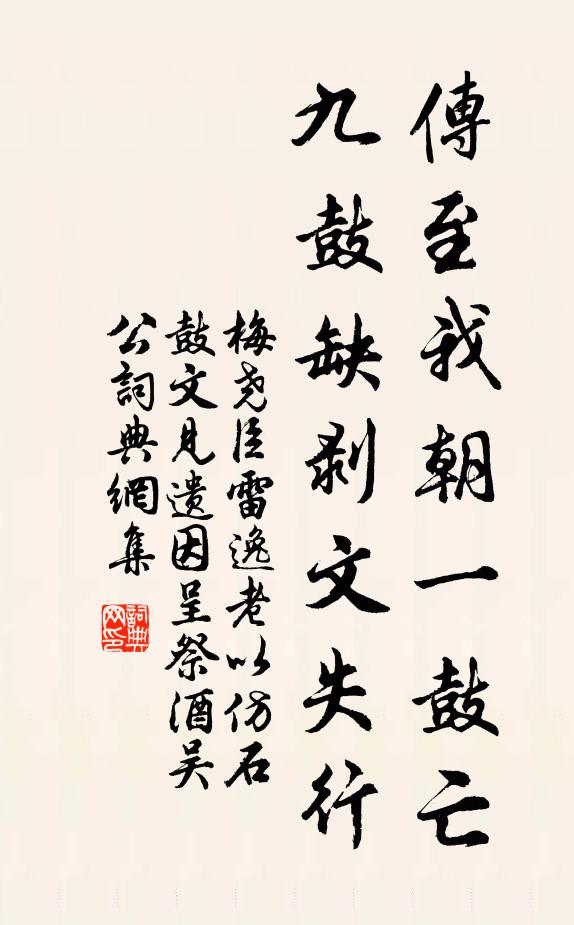 傳至我朝一鼓亡
九鼓缺剥文失行
梅尧臣雷逸老以仿石
鼓文見遺因呈祭酒吴
公詞典網集
詞典
网印